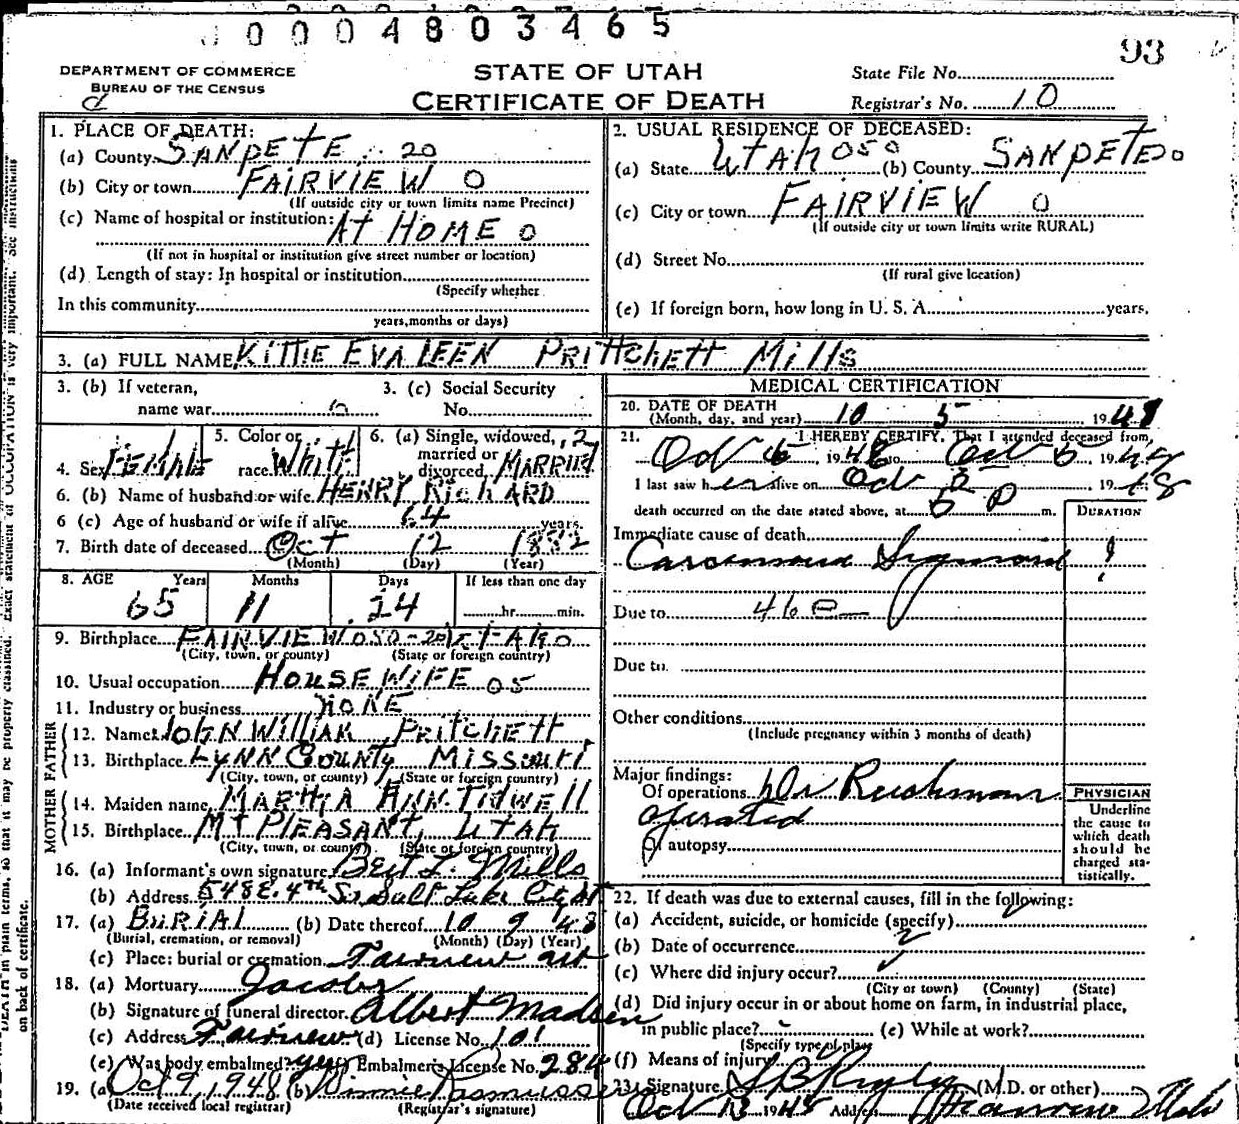 0 0 0 4 8 0 3 4 6 5
93
DEPARTMENT OF COMMERCE
BUREAU OF THE CENSUS
STATE OF UTAH
CERTIFICATE OF DEATH
State File No.
Registrar's No. 10
1. PLACE OF DEATH:
(a) County SANPETE 20
(b) City or town FAIRVIEW 0
(If outside city or town limits name Precinct)
(c) Name of hospital or institution:
AT HOME 0
(If not in hospital or institution give street number or location)
(d) Length of stay: In hospital or institution
(Specify whether
In this community
years, months or days)
2. USUAL RESIDENCE OF DECEASED:
(a) State UTAH 050 (b) County SANPETE
(c) City or town FAIRVIEW 0
(If outside city or town limits write RURAL)
(d) Street No.
(If rural give location)
(e) If foreign born, how long in U. S. A. years.
3. (a) FULL NAME KITTIE EVALEEN PRITTCHETT MILLS
3. (b) If veteran,
name war
3. (c) Social Security
No.
4. Sex FEMALE
5. Color or
race WHITE
6. (a) Single, widowed,
married or
divorced MARRIED
6. (b) Name of husband or wife HENRY RICHARD
6 (c) Age of husband or wife if alive 64 years
7. Birth date of deceased Oct 12 1882
(Month) (Day) (Year)
8. AGE Years Months Days If less than one day
65 11 24 hr. min.
9. Birthplace FAIRVIEW
(City, town, or county) (State or foreign country)
10. Usual occupation HOUSEWIFE 05
11. Industry or business NONE
FATHER
12. Name JOHN WILLIAM PRITCHETT
13. Birthplace LYNN COUNTY MISSOURI
(City, town, or county) (State or foreign country)
MOTHER
14. Maiden name MARTHA ANN TIDWELL
15. Birthplace MT PLEASANT, UTAH
(City, town, or county) (State or foreign country)
16. (a) Informant's own signature Bert L. Mills
(b) Address 548 E. 4th So. Salt Lake City Ut
17. (a) BURIAL (b) Date thereof 10 9 48
(Burial, cremation, or removal) (Month) (Day) (Year)
(c) Place: burial or cremation Fairview Ut
18. (a) Mortuary Jacobs
(b) Signature of funeral director Albert Madsen
(c) Address Fairview (d) License No. 101
(e) Was body embalmed? yes (f) Embalmer's License No. 284
19. (a) Oct 9, 1948 (b) Winnie Rasmussen
(Date received local registrar) (Registrar's signature)
MEDICAL CERTIFICATION
20. DATE OF DEATH
(Month, day, and year) 10 5 1948
21. I HEREBY CERTIFY, That I attended deceased from
Oct 1948 to Oct 5 19
I last saw her alive on Oct 5 1948
death occurred on the date stated above, at 5 P m.
DURATION
Immediate cause of death
Carcinoma Sigmoid ?
Due to 46e
Due to
Other conditions
(Include pregnancy within 3 months of death)
Major findings:
Of operations Dr
operated
Of autopsy
PHYSICIAN
Underline
the cause to
which death
should be
charged sta-
tistically.
22. If death was due to external causes, fill in the following:
(a) Accident, suicide, or homicide (specify)
(b) Date of occurrence
(c) Where did injury occur?
(City or town) (County) (State)
(d) Did injury occur in or about home on farm, in industrial place,
in public place? (e) While at work?
(Specify type of place
(f) Means of injury
23. Signature (M.D. or other)
Oct 13 1948 Address Utah
on back of certificate.